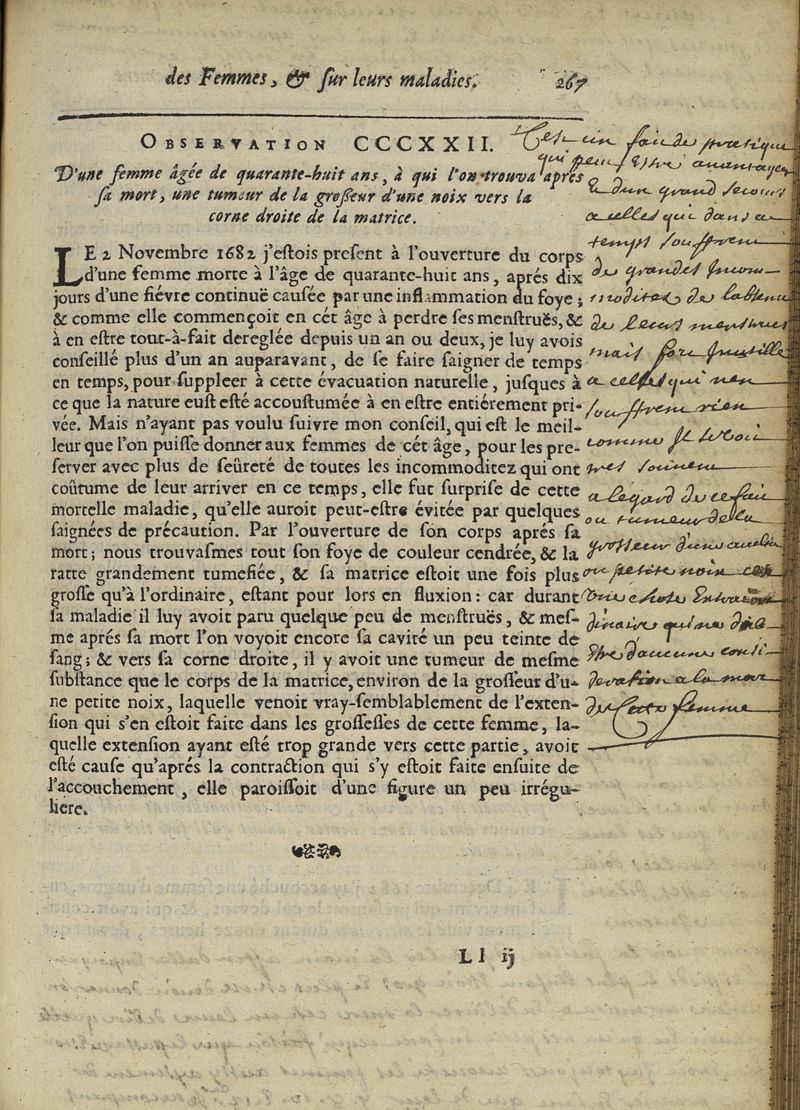 des Femmes, & ſur leurs maladies. 267
OBSERVATION CCCXXII.
D'une femme âgée de quarante-huit ans, à qui l'on trouva aprés
ſa mort, une tumeur de la groſſeur d'une noix vers la
corne droite de la matrice.
LE 2 Novembre 1682 j'eſtois preſent à l'ouverture du corps
d'une femme morte à l'âge de quarante-huit ans, aprés dix
jours d'une fiévre continuë cauſée par une inflammation du foye;
& comme elle commençoit en cét âge à perdre ſes menſtruës, &
à en eſtre tout-à-fait dereglée depuis un an ou deux, je luy avois
conſeillé plus d'un an auparavant, de ſe faire ſaigner de temps
en temps, pour ſuppleer à cette évacuation naturelle, juſques à
ce que la nature euſt eſté accouſtumée à en eſtre entiérement pri-
vée. Mais n'ayant pas voulu ſuivre mon conſeil, qui eſt le meil-
leur que l'on puiſſe donner aux femmes de cét âge, pour les pre-
ſerver avec plus de ſeûreté de toutes les incommoditez qui ont
coûtume de leur arriver en ce temps, elle fut ſurpriſe de cette
mortelle maladie, qu'elle auroit peut-eſtre évitée par quelques
ſaignées de précaution. Par l'ouverture de ſon corps aprés ſa
mort; nous trouvaſmes tout ſon foye de couleur cendrée, & la
ratte grandement tumefiée, & ſa matrice eſtoit une fois plus
groſſe qu'à l'ordinaire, eſtant pour lors en fluxion: car durant
ſa maladie il luy avoit paru quelque peu de menſtruës, & meſ-
me aprés ſa mort l'on voyoit encore ſa cavité un peu teinte de
ſang; & vers ſa corne droite, il y avoit une tumeur de meſme
ſubſtance que le corps de la matrice, environ de la groſſeur d'u-
ne petite noix, laquelle venoit vray-ſemblablement de l'exten-
ſion qui s'en eſtoit faite dans les groſſeſſes de cette femme, la-
quelle extenſion ayant eſté trop grande vers cette partie, avoit
eſté cauſe qu'aprés la contraction qui s'y eſtoit faite enſuite de
l'accouchement, elle paroiſſoit d'une figure un peu irrégu-
liere.
Ll ij
un fait de pratique
qui peut estre
dun grand secours
a celles qui dans ce
temps souffrent
de grandes incom-
moditez de
de leurs menstrues
mais fort inutille
a celles qui nen
souffrent rien
comme je le voi
tres souvent
a legard de ce fait
ou tumeur de la
grosseur d'une
ou petite noix
de cette femme